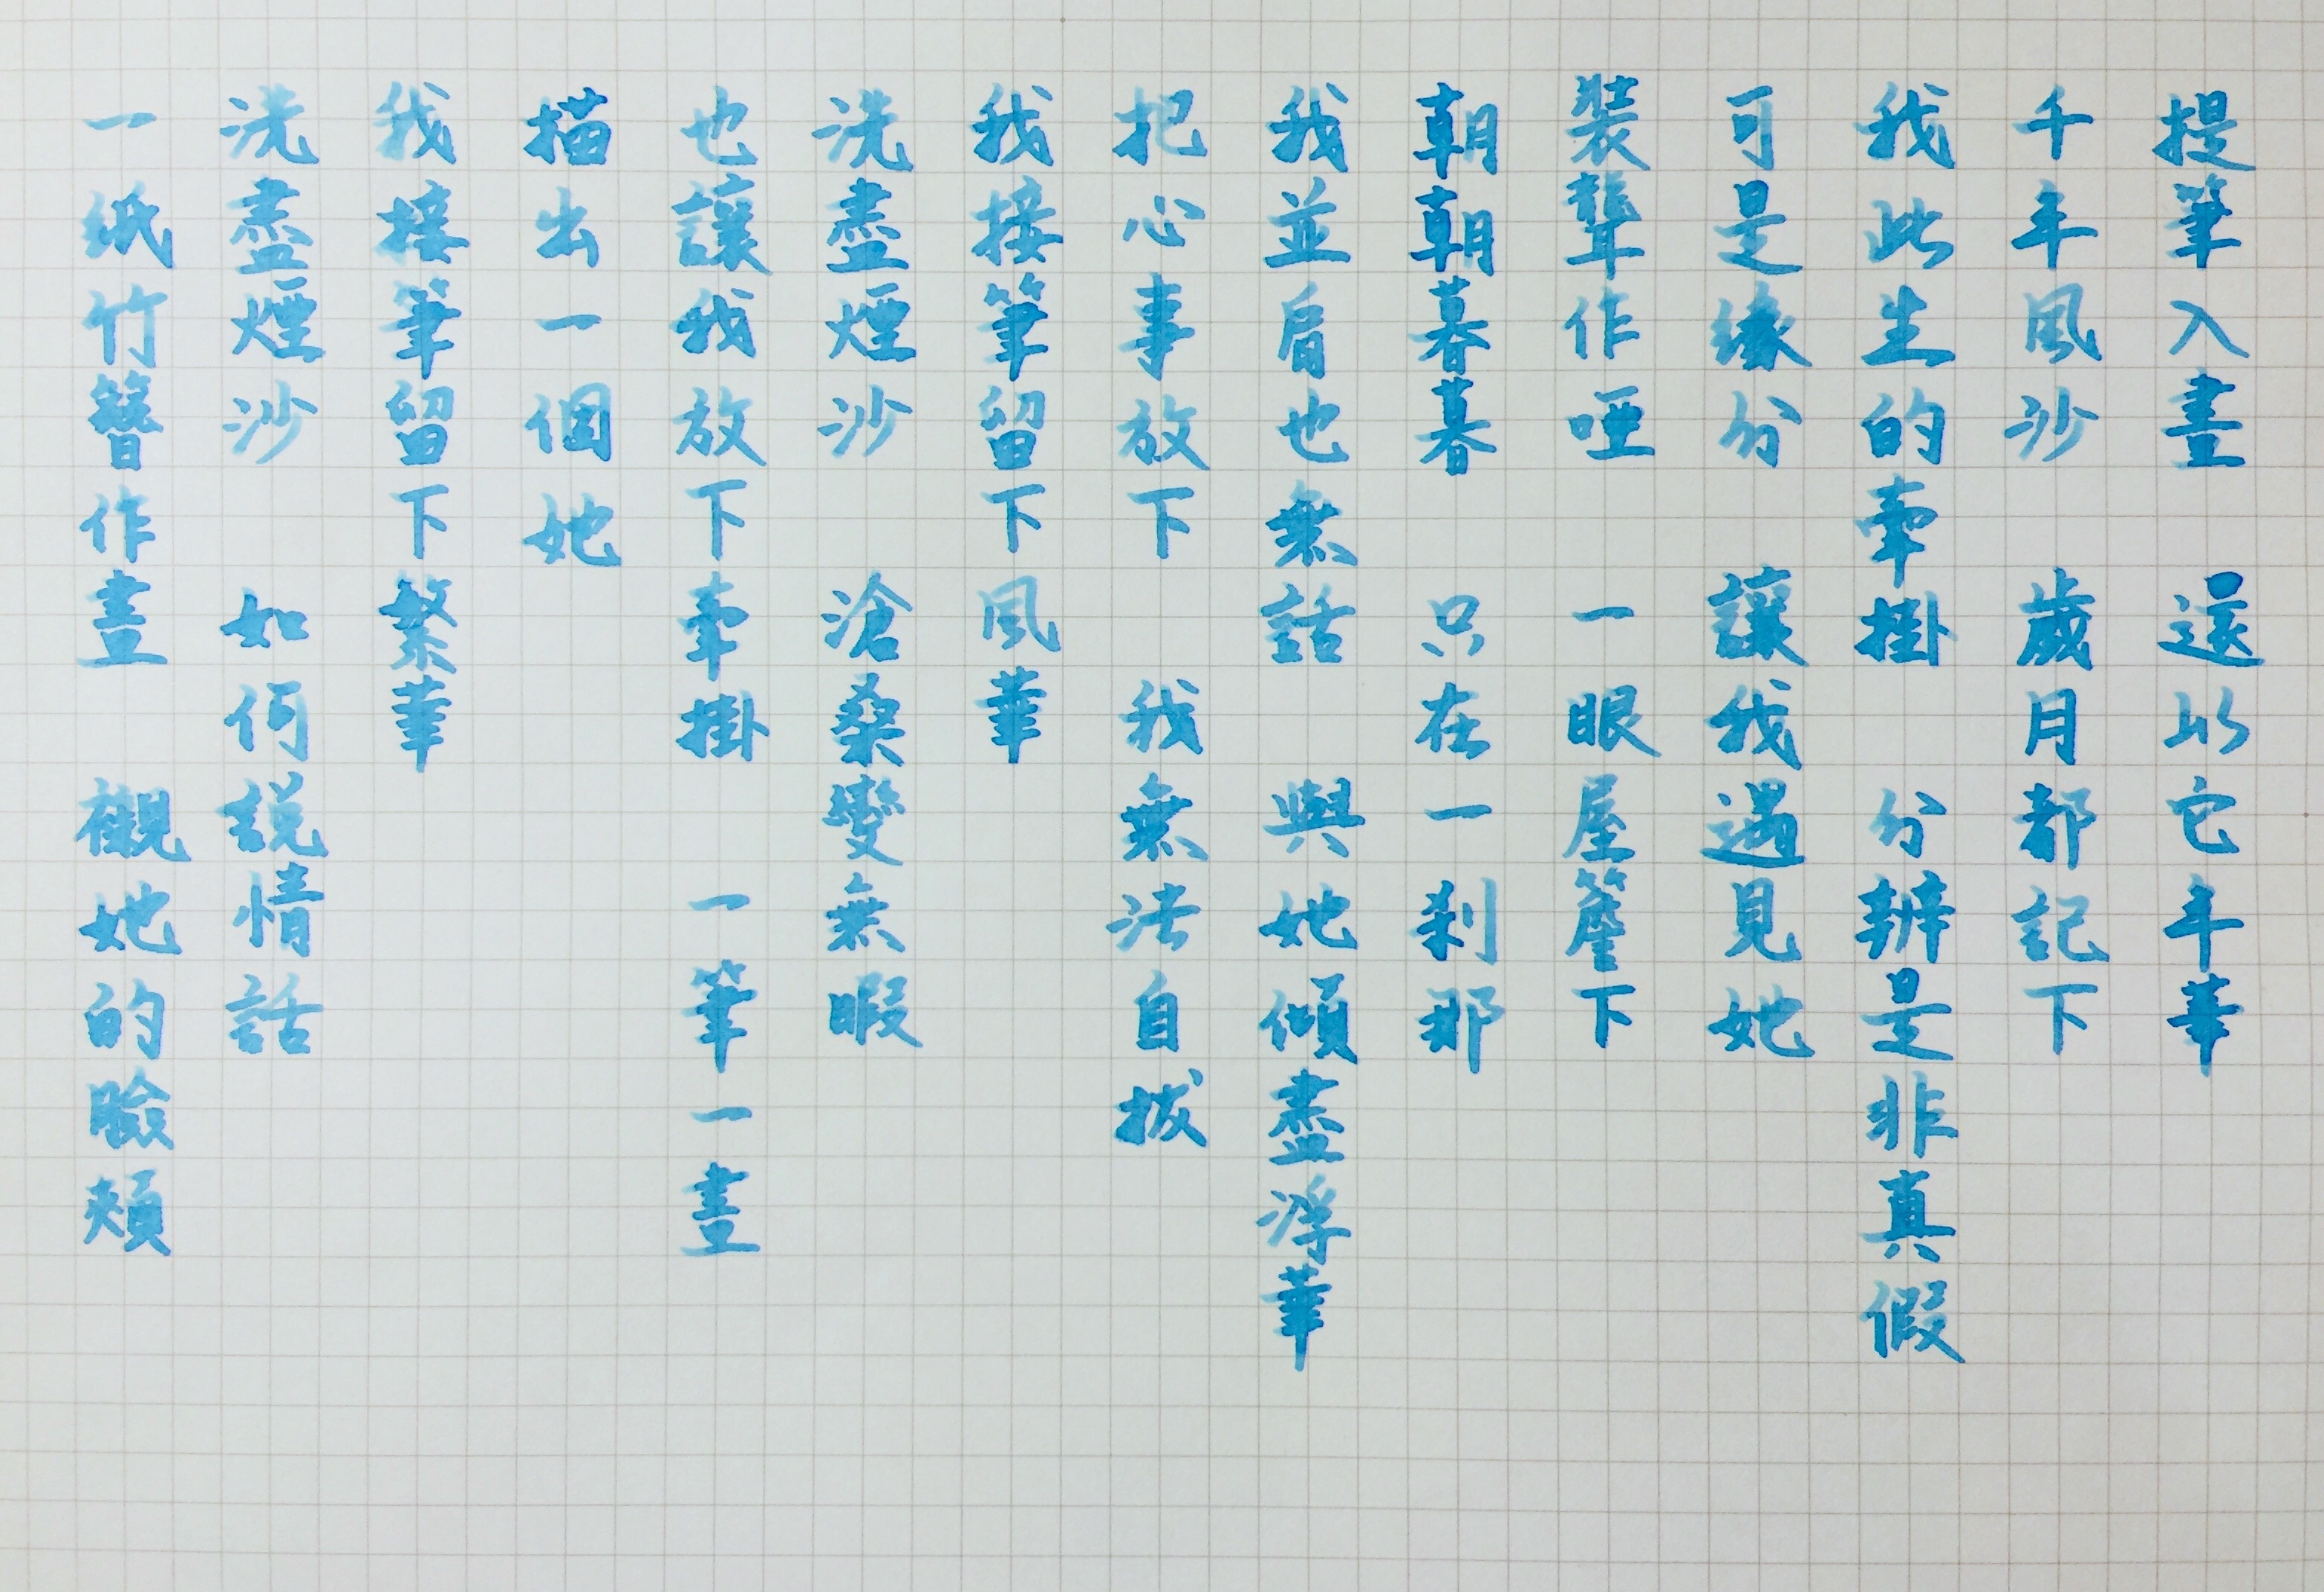 提筆入畫　還以它年華
千年風沙　歲月都記下
我此生的牽掛　分辨是非真假
可是緣分　讓我遇見她
裝聾作啞　一眼屋簷下
朝朝暮暮　只在一剎那
我並肩也無話　與她傾盡浮華
把心事放下　我無法自拔
我接筆留下　風華
洗盡煙沙　滄桑變無暇
也讓我放下牽掛　一筆一畫
描出一個她
我接筆留下繁華
洗盡煙沙　如何說情話
一紙竹簪作畫　襯她的臉頰